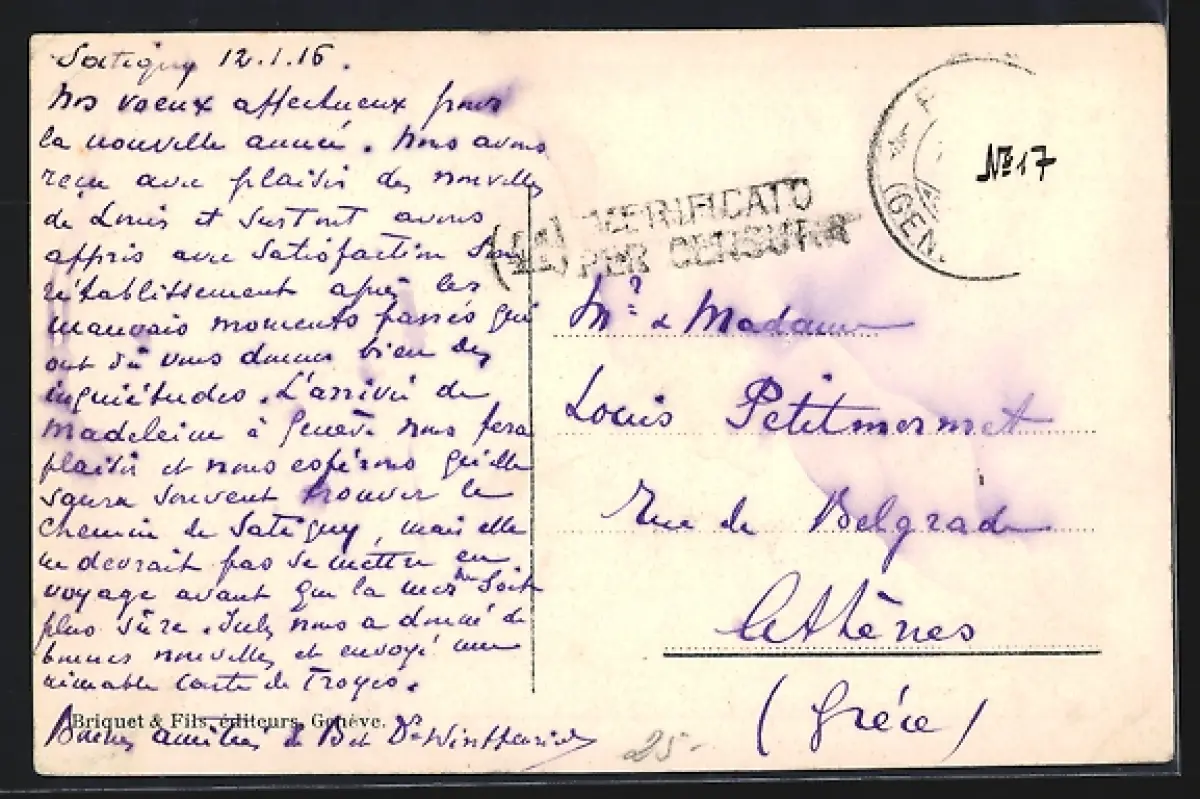 Satigny 12.1.16.
Nos voeux affectueux pour
la nouvelle année. Nous avons
reçu avec plaisir des nouvelles
de Louis et surtout avons
appris avec satisfaction son
rétablissement après les
mauvais moments passés qui
ont dû vous donner bien des
inquiétudes. L'arrivée de
Madeleine à Genève nous fera
plaisir et nous espérons qu'elle
saura souvent trouver le
chemin de Satigny, mais elle
ne devrait pas se mettre en
voyage avant que la mer ne soit
plus sûre. nous a donné de
bonnes nouvelles et envoyé une
aimable carte de Troyes.
Briquet & Fils, éditeurs, Genève.
Bonnes amitiés de
(44) VERIFICATO
PER CENSURA
(GEN.
No 17
Mr & Madame
Louis Petitmermet
Rue de Belgrade
Athènes
(Grèce)
25.-